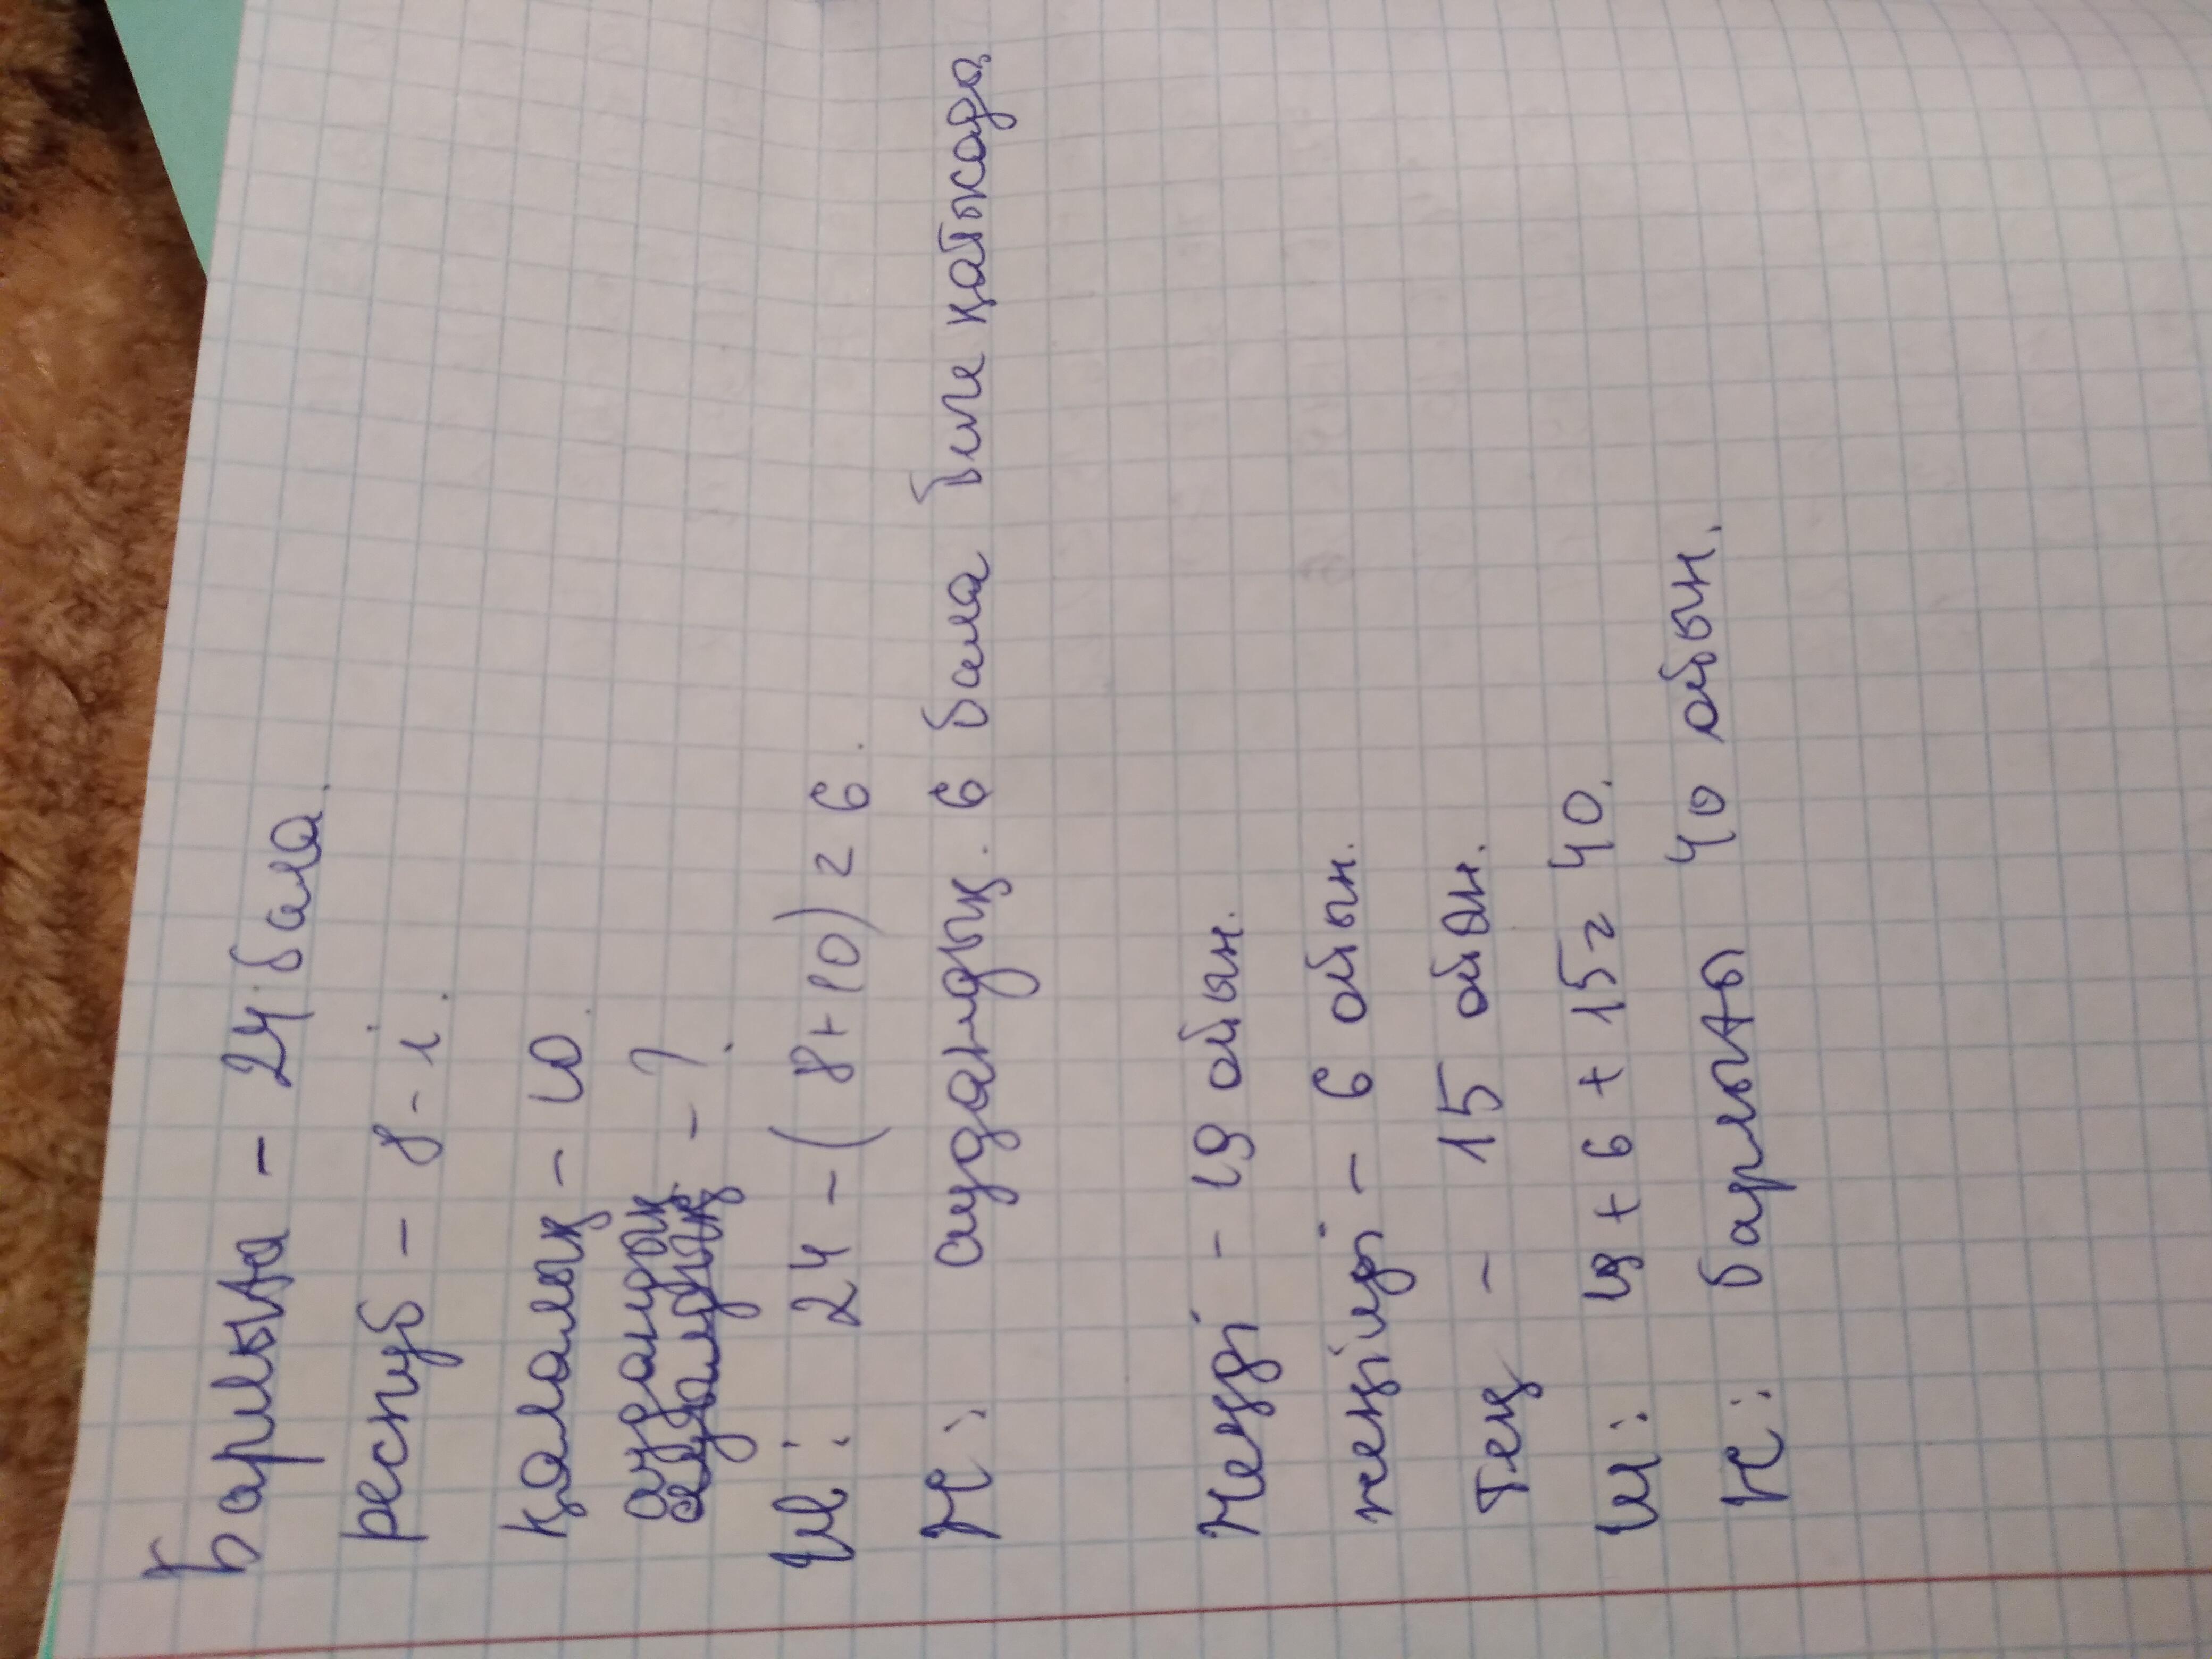 Барлығы - 24 бала.
респуб - 8-і.
қалалық - 10.
аудандық
аудандық - ?
Ш: 24 - (8+10) = 6.
Ж: аудандық. 6 бала ғиле қатысады.
Жеңді - 19 ойын.
жеңілді - 6 ойын.
Тең - 15 ойын.
Ш: 19 + 6 + 15 = 40.
Ж: барлығы 40 ойын.